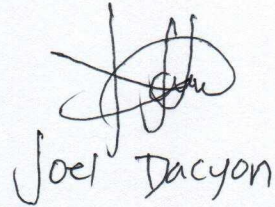 Joel Dacyon